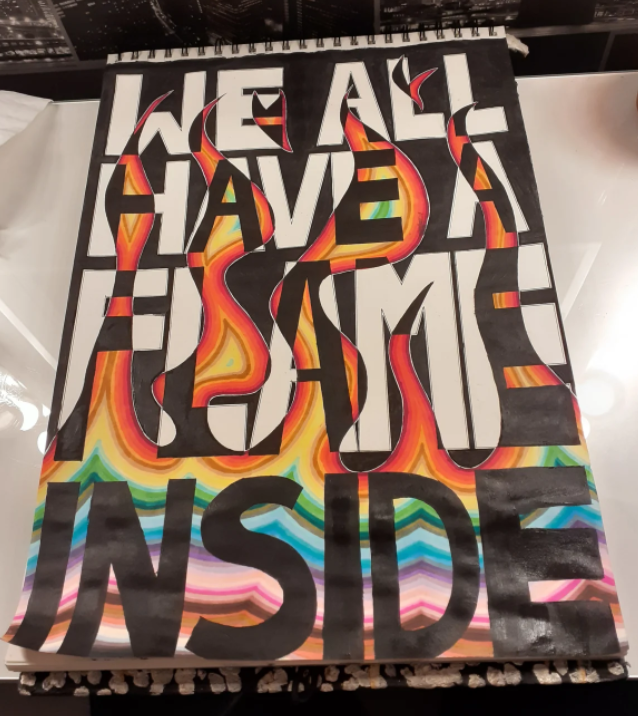 WE ALL
HAVE A
FLAME
INSIDE